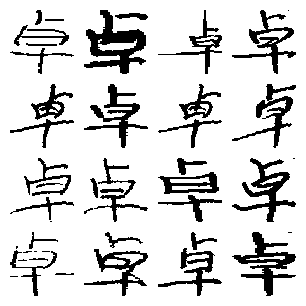 卓卓卓卓
卓卓卓卓
卓卓卓卓
卓卓卓卓